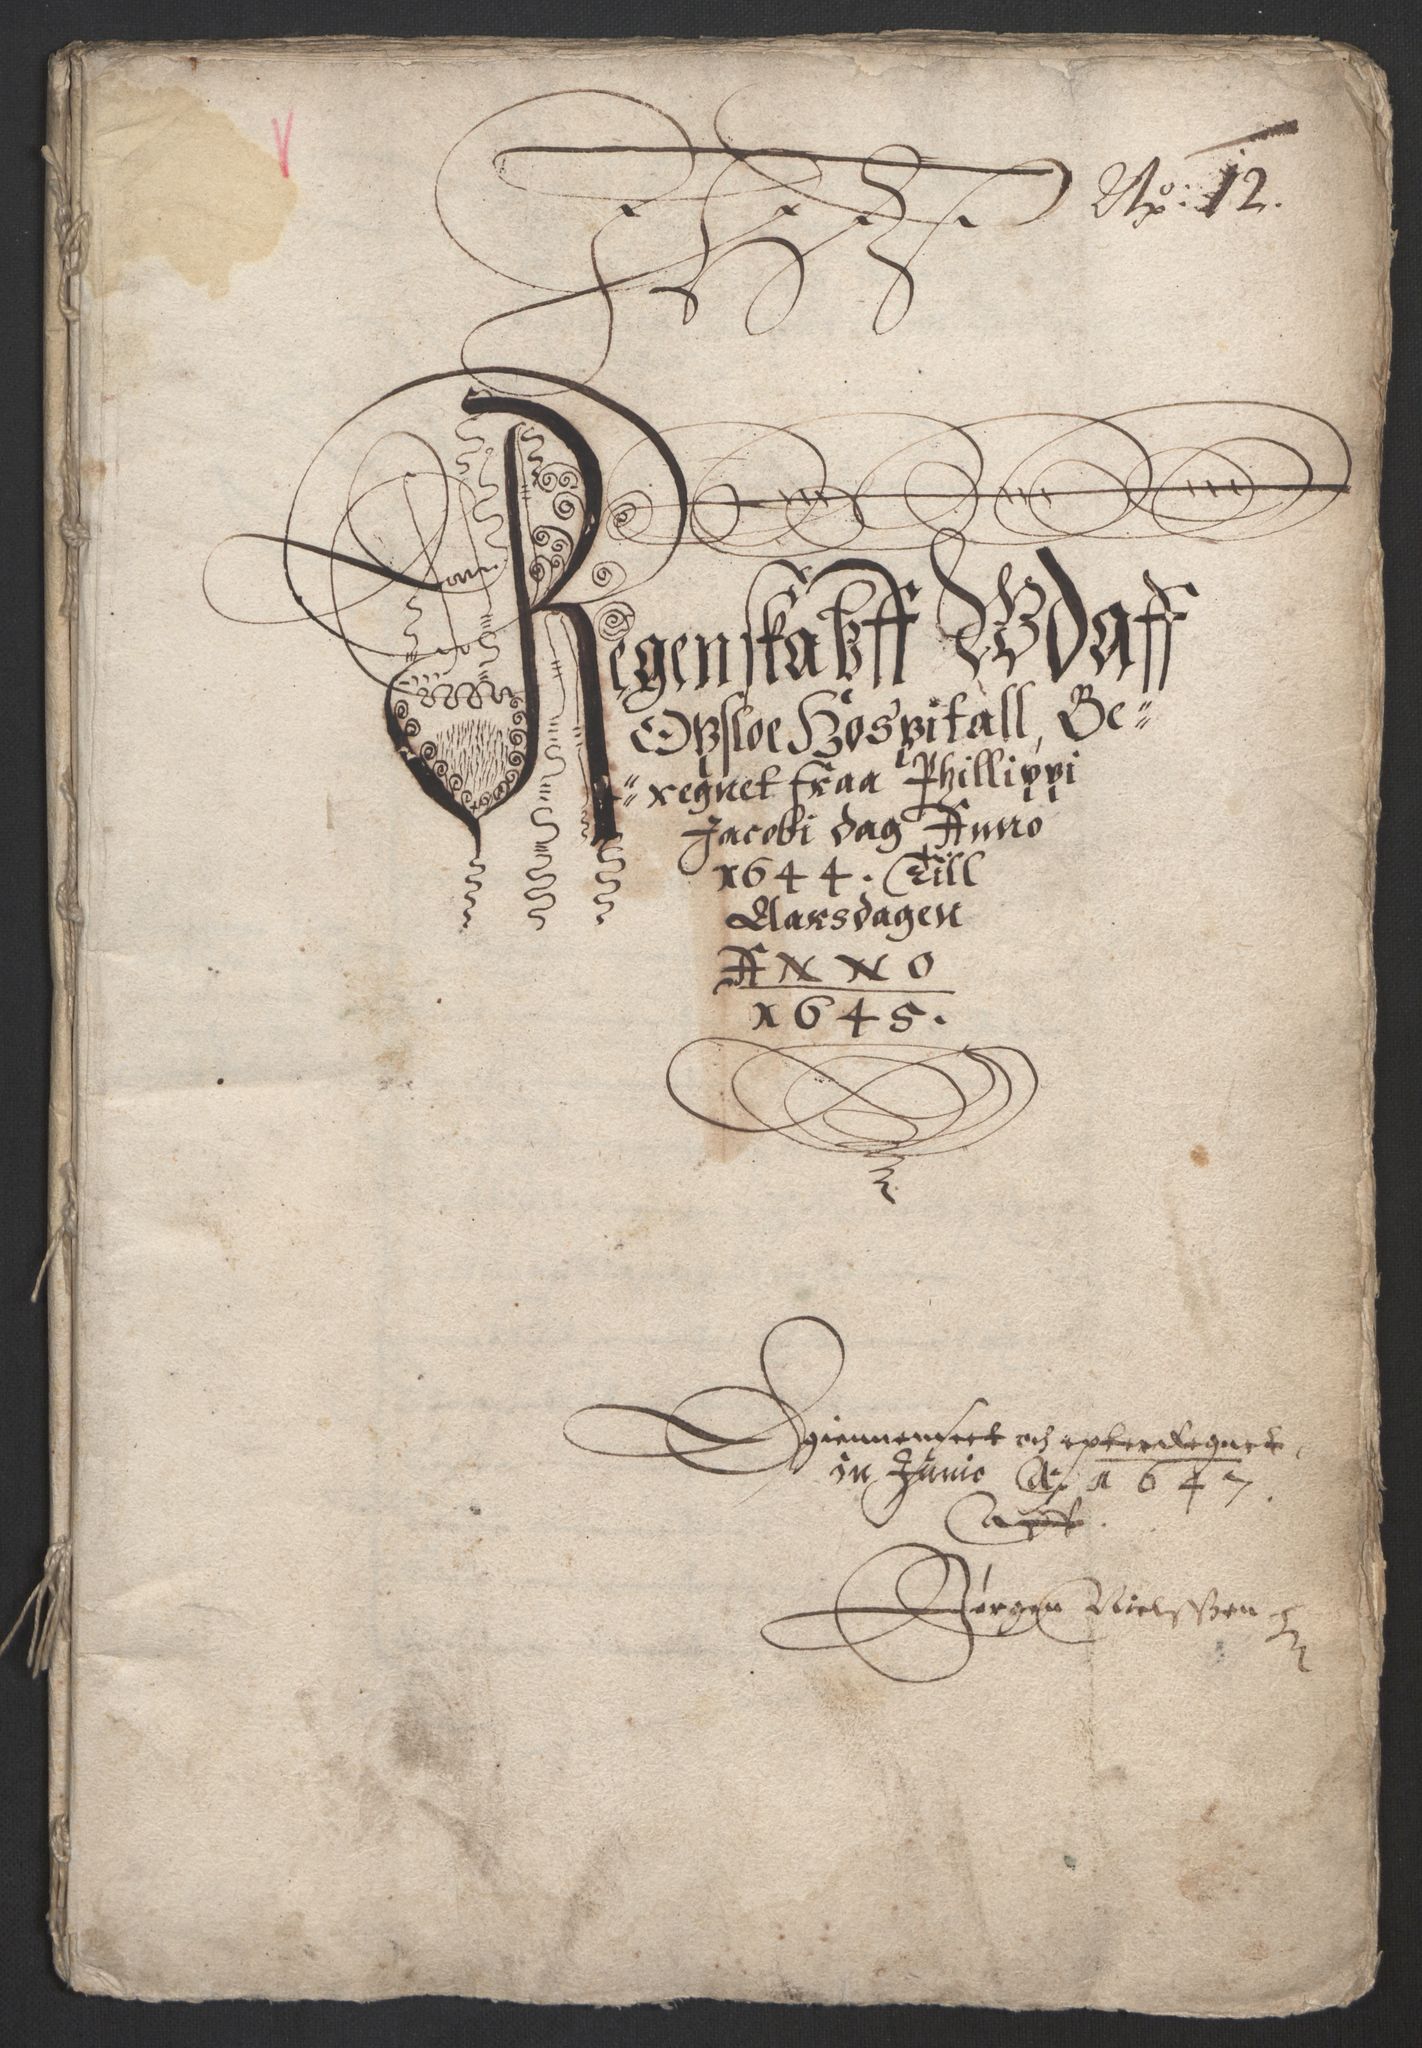 No: 12.
Regenskabff Wdaff
Opsloe Hospitall, Be=
=regnet fraa Phillippi
Jacobi dag Anno
1644. Till
Aarsdagen
ANNO
1645.
Igiennemseet och epterregnet,
in Junio Ao 1647.
aff
Jørgen Nielssen